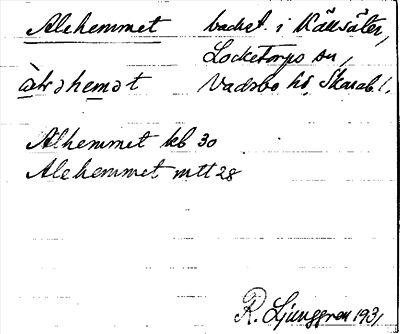 Alehemmet backst. i Källsäter,
Locketorps sn,
àɫəhemət Vadsbo hd, Skarab. l.
Alhemmet kb 30
Alehemmet mtt 28
R. Ljunggren 1931